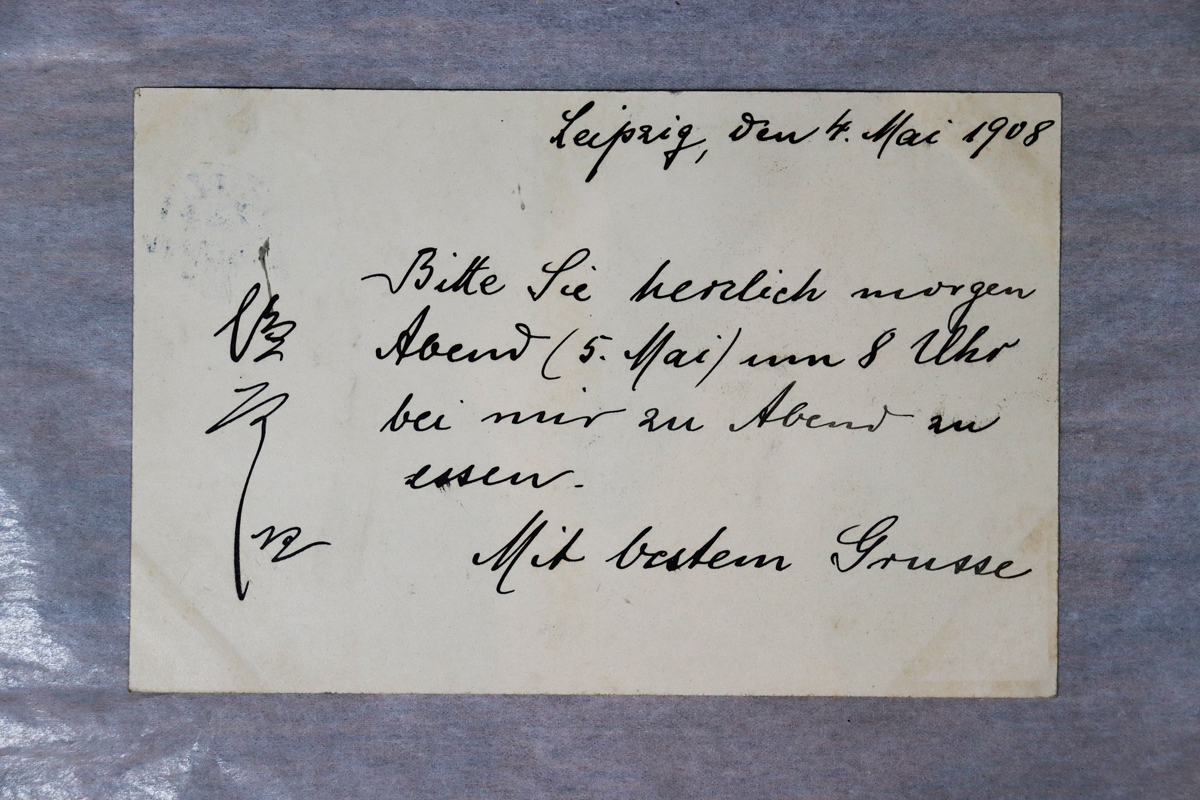 Leipzig, den 4. Mai 1908
Bitte Sie herzlich morgen
Abend (5. Mai) um 8 Uhr
bei mir zu Abend zu
essen.
Mit bestem Grusse